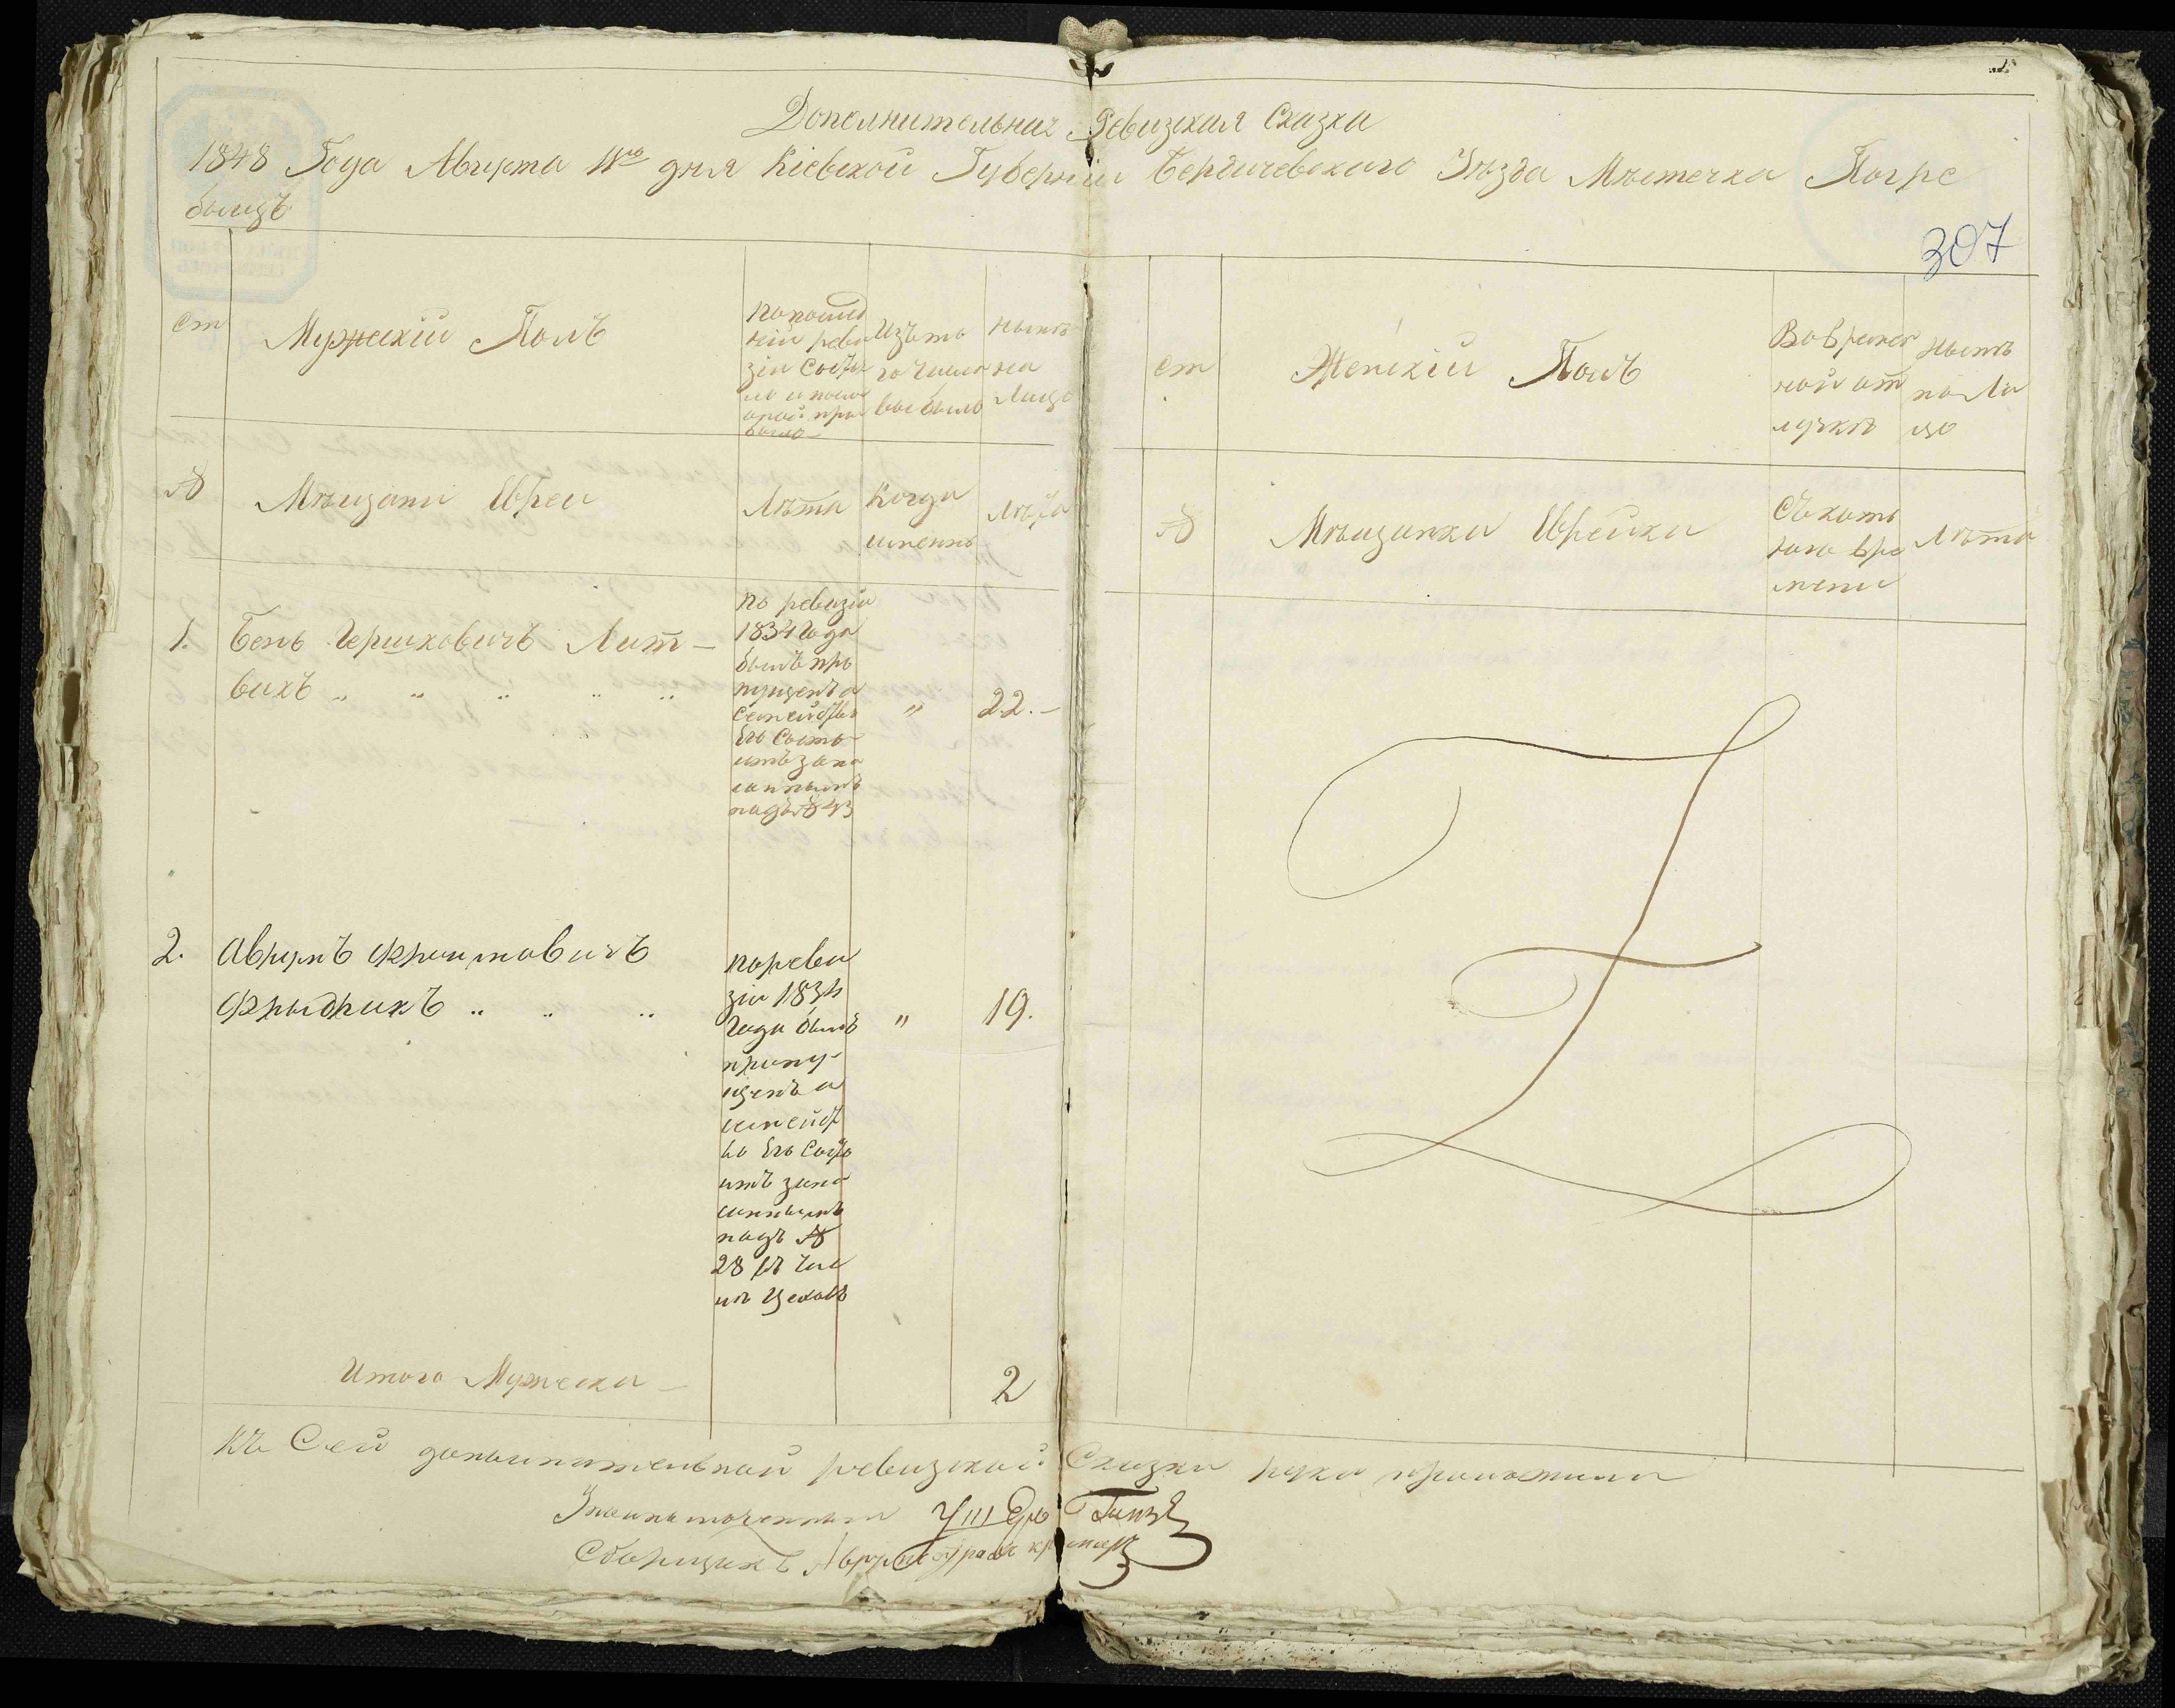 Дополнительная Ревизская Сказка
1848 Года Августа 11го дня Кіевской Губерніи Бердичевскаго Уѣзда Мѣстечка Погре
бищъ
307
ст
Мужескій Полъ
По послѣд
ней реви
зіи состоя
ло и после
оной при
было
Изъ то
го числа
выбыло
Нынѣ
на
Лицо
ст
Женскій Полъ
Во времен
ной от
лучкѣ
Нынѣ
на Ли
цо
№
Мѣщани Евреи
Лѣта
Когда
именно
Лѣта
№
Мѣщанки Еврейки
Съ кото
раго вре
мени
Лѣта
1. Бень Гершковичъ Лит-
вакъ
по ревизіи
1834 Года
былъ про
пущенъ а
семейство
Его состо
итъ запи
саннымъ
подъ № 43
" 22.
2. Аврумъ Фроимовичъ
Фрыдрихъ
по реви
зіи 1834
Года былъ
пропу-
щенъ а
семейст
во Его состо
итъ запи
саннымъ
подъ №
28 въ чис
лѣ Цеховъ
" 19.
Итого Мужеска 2
Къ Сей дополнительной ревизской Сказки руки приложили
Сборщикъ